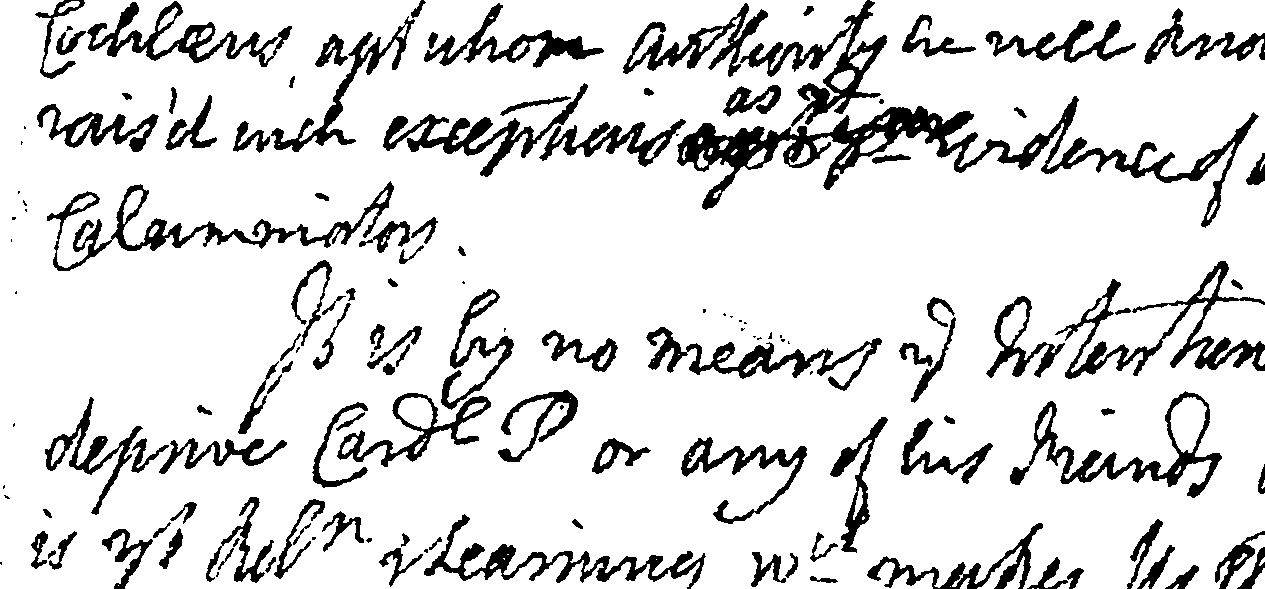 Cochlæus, agst whom Authority he well kno
rais'd such exceptions as yt evidence of
Calumniator.
It is by no means ye Intention
deprive Cardl P or any of his Friends
is yt Reln & Learning wch makes us